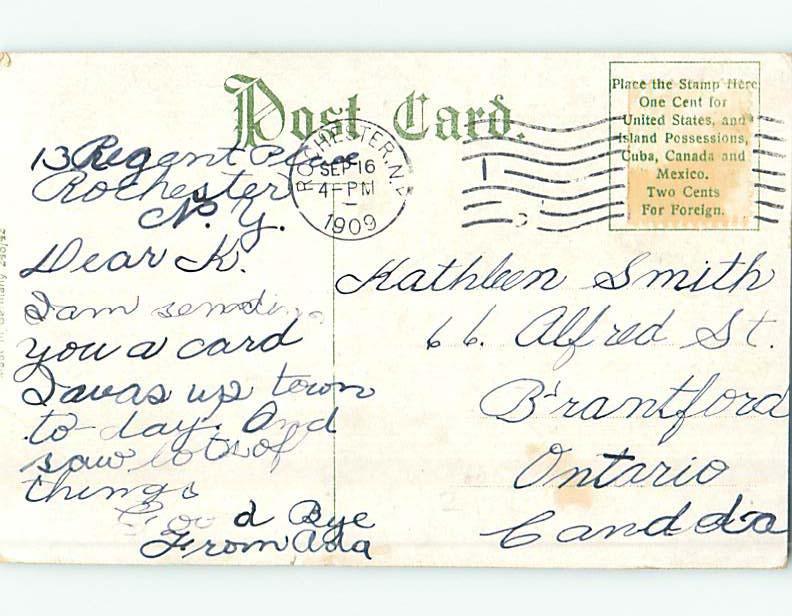 Post Card.
Place the Stamp Here
One Cent for
United States, and
Island Possessions,
Cuba, Canada and
Mexico.
Two Cents
For Foreign.
ROCHESTER, N.Y.
SEP 16
4-PM
1909
13 Regent Place
Rochester
N. Y.
Dear K.
I am sending
you a card
I was up town
to day. And
saw lots of
things
Good Bye
From Ada
Kathleen Smith
66. Alfred St.
Brantford
Ontario
Canada